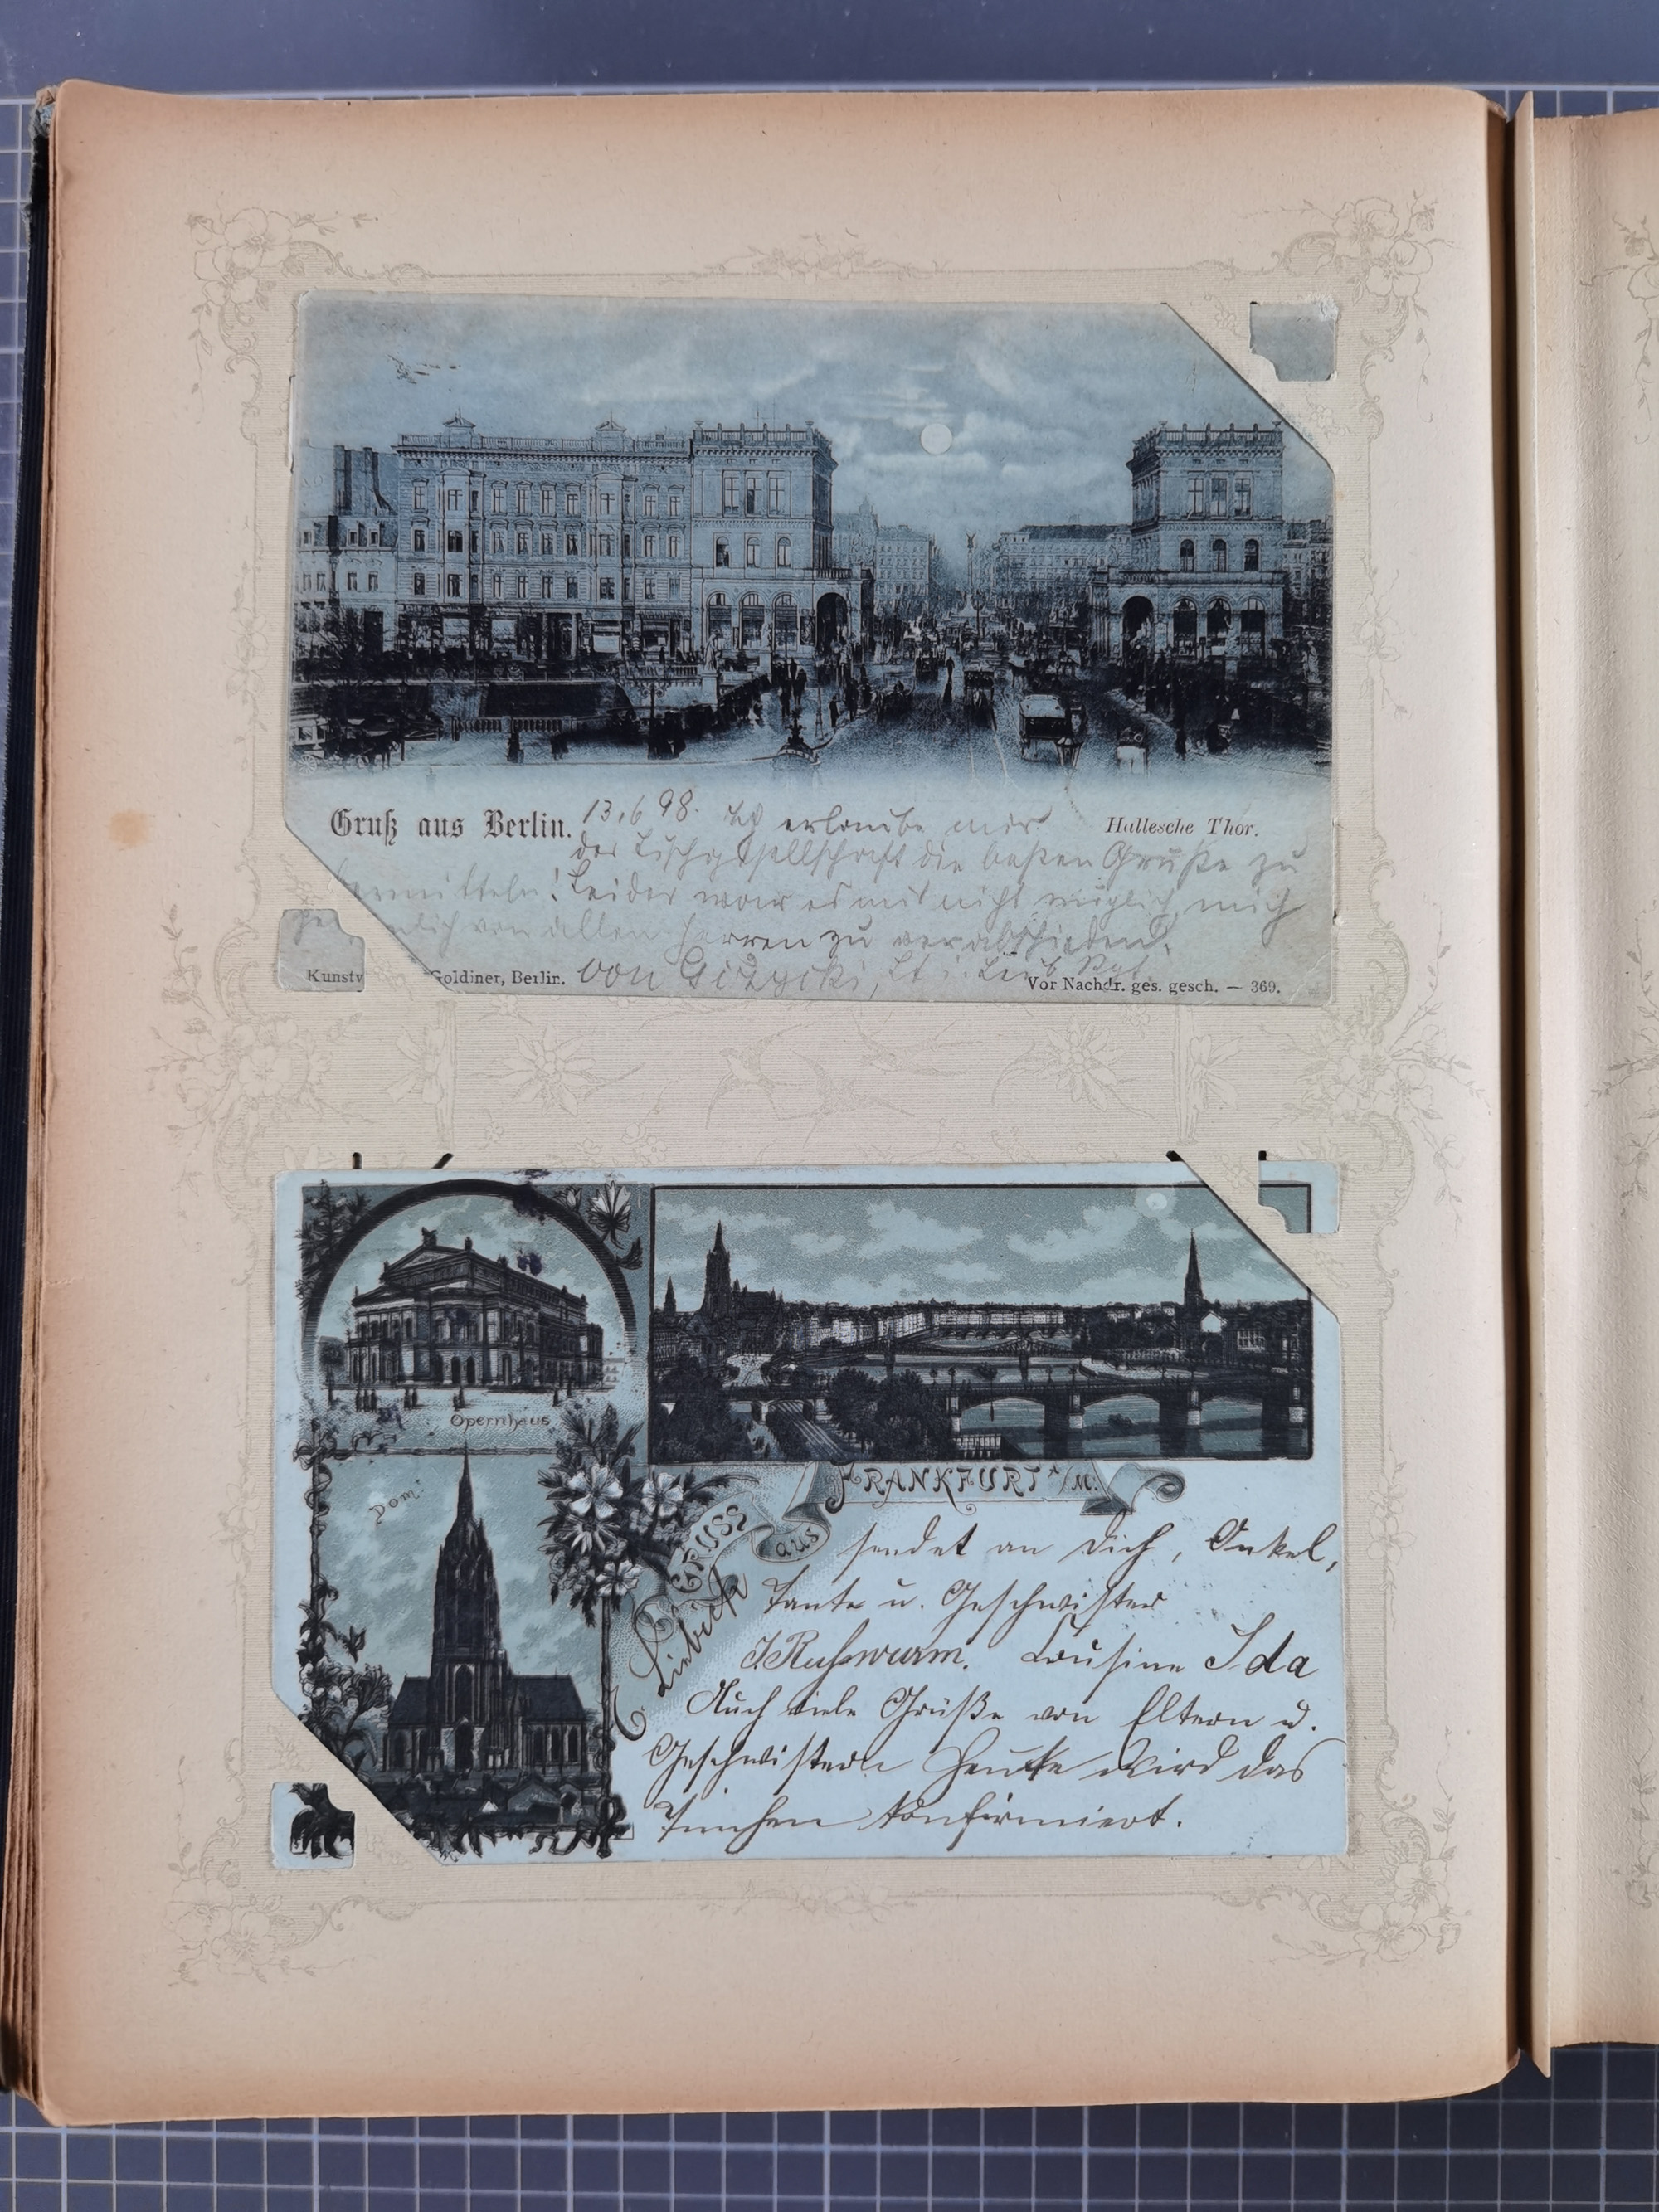 Gruß aus Berlin.
Hallesche Thor.
13.6 98. Ich erlaube mir
der Tischgesellschaft die besten Grüße zu
ermitteln! Leider war es mir nicht möglich, mich
von allen Herren zu verabschieden.
von Gizycki, Lt i. Leib Rgt.
Kunstv Goldiner, Berlin.
Vor Nachdr. ges. gesch. — 369.
Opernhaus
Dom
GRUSS aus FRANKFURT A/M.
sendet an Dich, Onkel,
Tante u. Geschwister
Ida
Auch viele Grüße von Eltern u.
Geschwistern Heute wird das
konfirmiert.